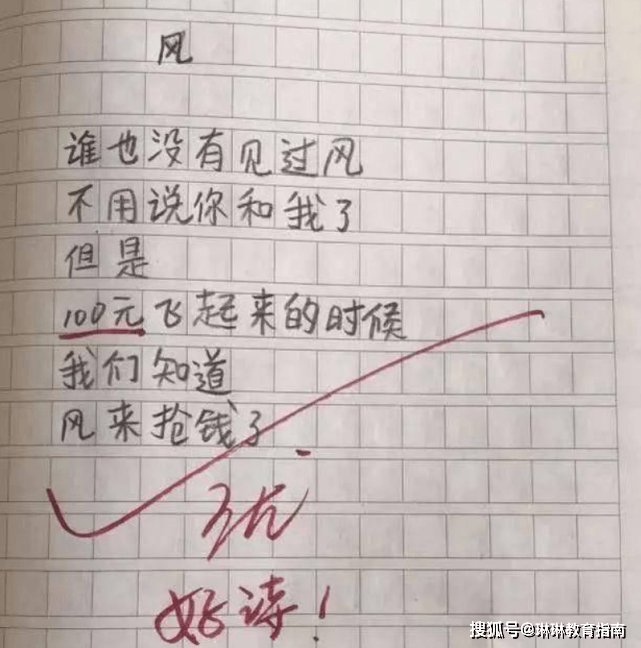 风
谁也没有见过风
不用说你和我了
但是
100元飞起来的时候
我们知道
风来抢钱了
优
好诗！
搜狐号@琳琳教育指南